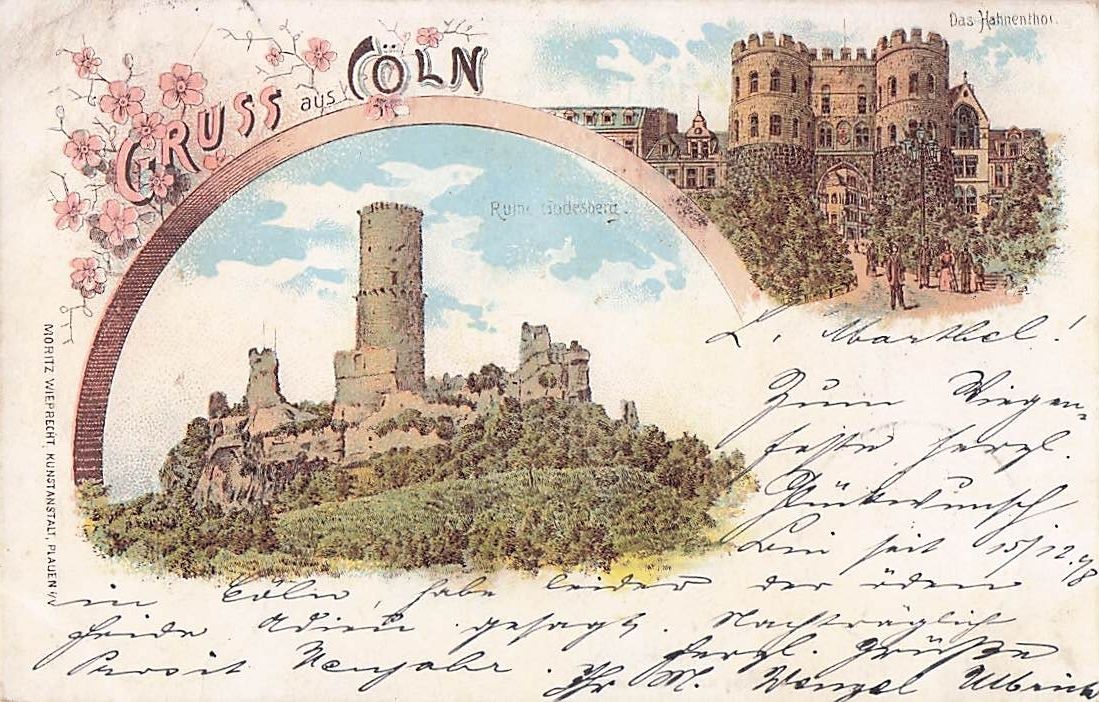 GRUSS aus CÖLN
Das Hahnenthor.
Ruine Godesberg.
MORITZ WIEPRECHT, KUNSTANSTALT, PLAUEN i/V
L. Marthel!
Zum Wiegen-
feste herzl.
Glückwunsch
bin seit 15/12. 98
in Cöln, habe leider der öden
Heide Adieu gesagt. Nachträglich
Prosit Neujahr. herzl. Grüße
Ihr M. Wenzel Ulbrich